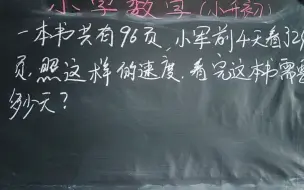 小学数学(小升初)
一本书共有96页,小军前4天看32
页,照这样的速度,看完这本书需要
多少天?